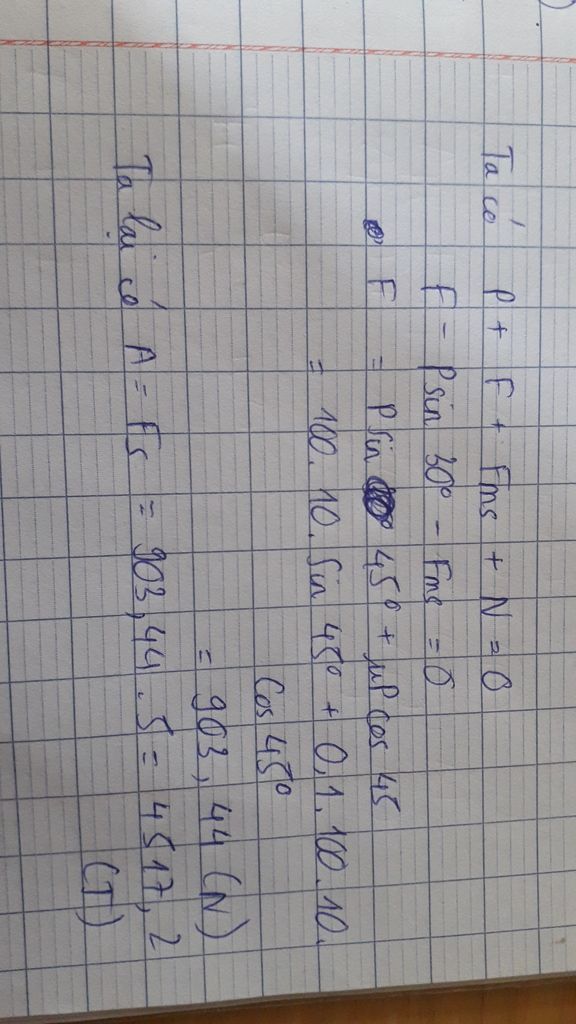 Ta có P + F + Fms + N = 0
F - Psin 30° - Fms = 0
F = Psin 45° + μP cos 45
= 100. 10. Sin 45° + 0,1. 100. 10.
Cos 45°
= 903, 44 (N)
Ta lại có A = Fs = 903,44 . 5 = 4517, 2
(J)